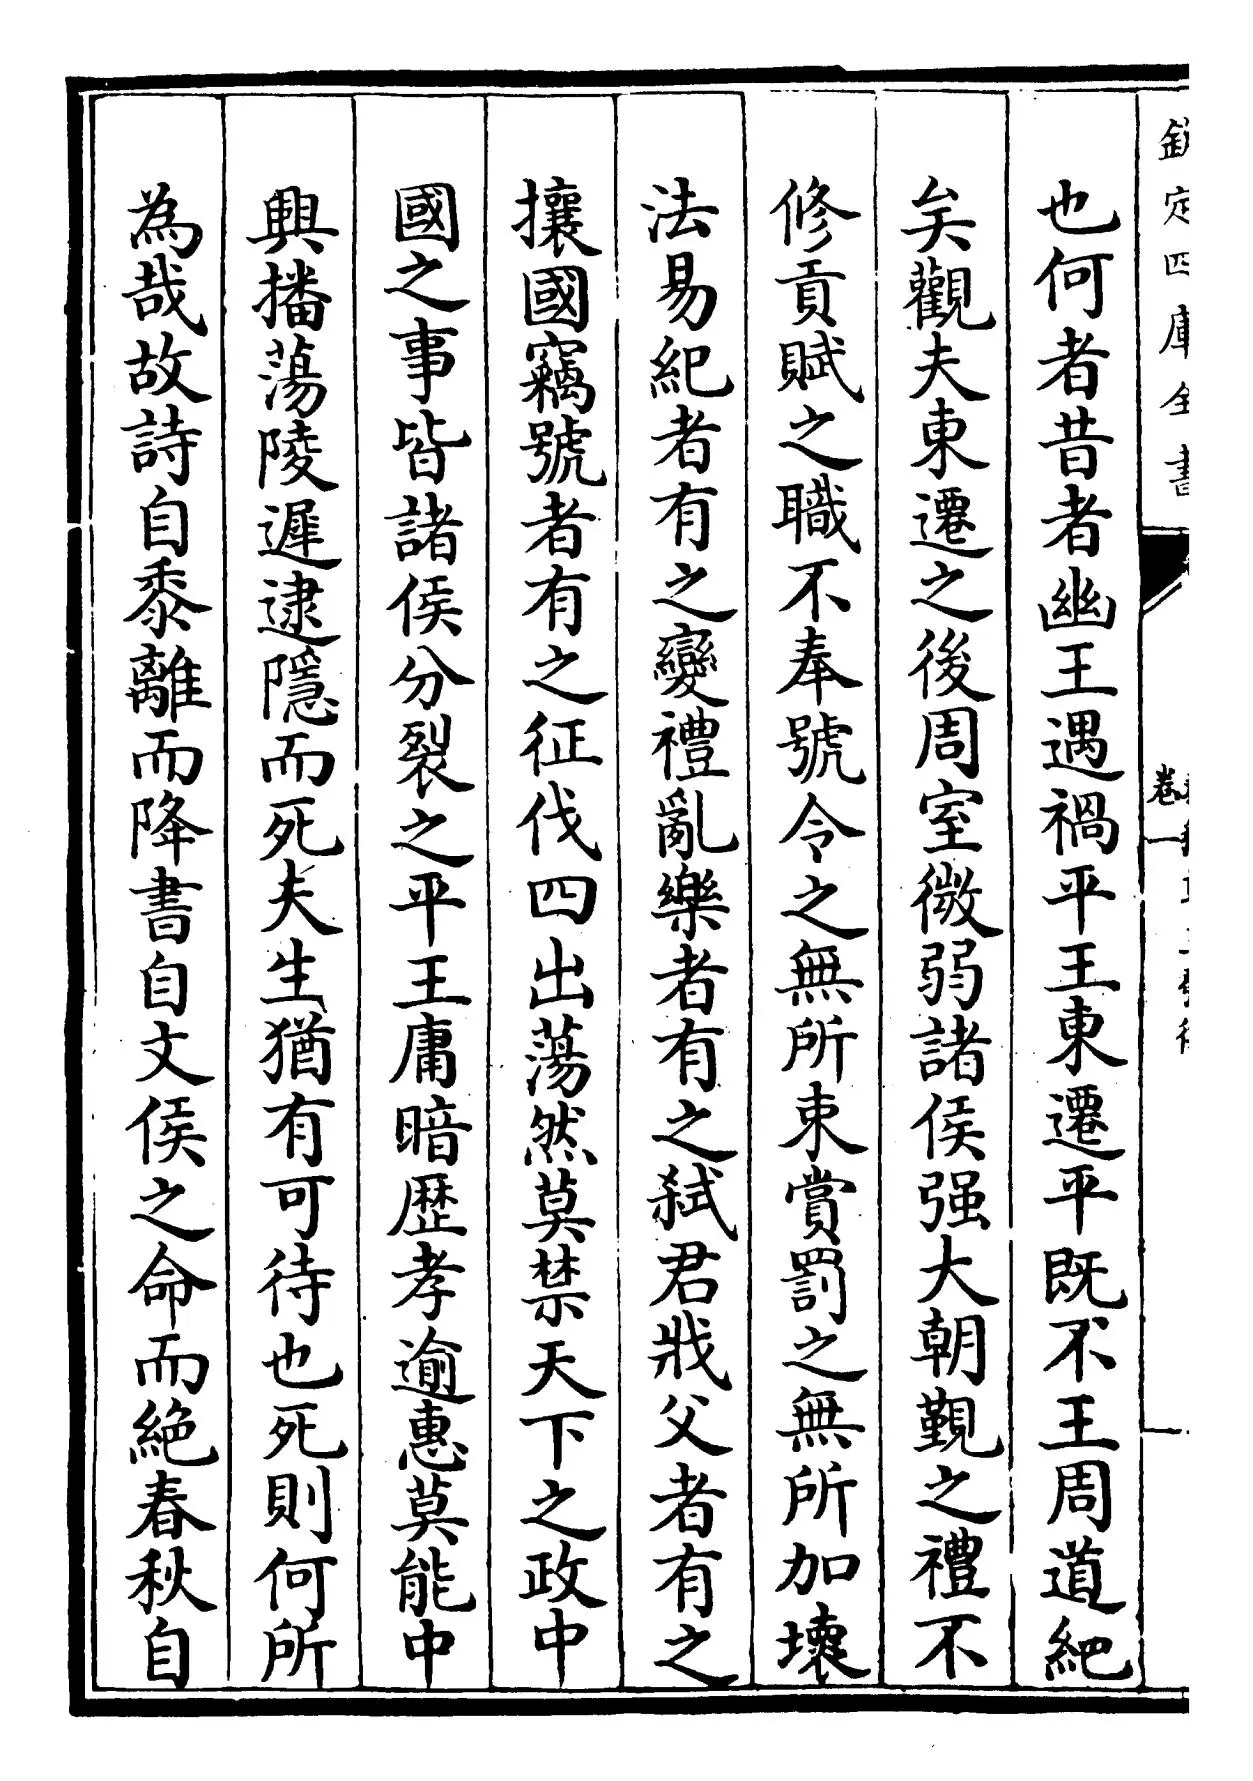 欽定四庫全書
卷一
也何者昔者幽王遇禍平王東遷平既不王周道絶
矣觀夫東遷之後周室微弱諸侯强大朝覲之禮不
修貢賦之職不奉號令之無所束賞罰之無所加壞
法易紀者有之變禮亂樂者有之弑君戕父者有之
攘國竊號者有之征伐四出蕩然莫禁天下之政中
國之事皆諸侯分裂之平王庸暗歴孝逾惠莫能中
興播蕩陵遲逮隱而死夫生猶有可待也死則何所
為哉故詩自黍離而降書自文侯之命而絶春秋自